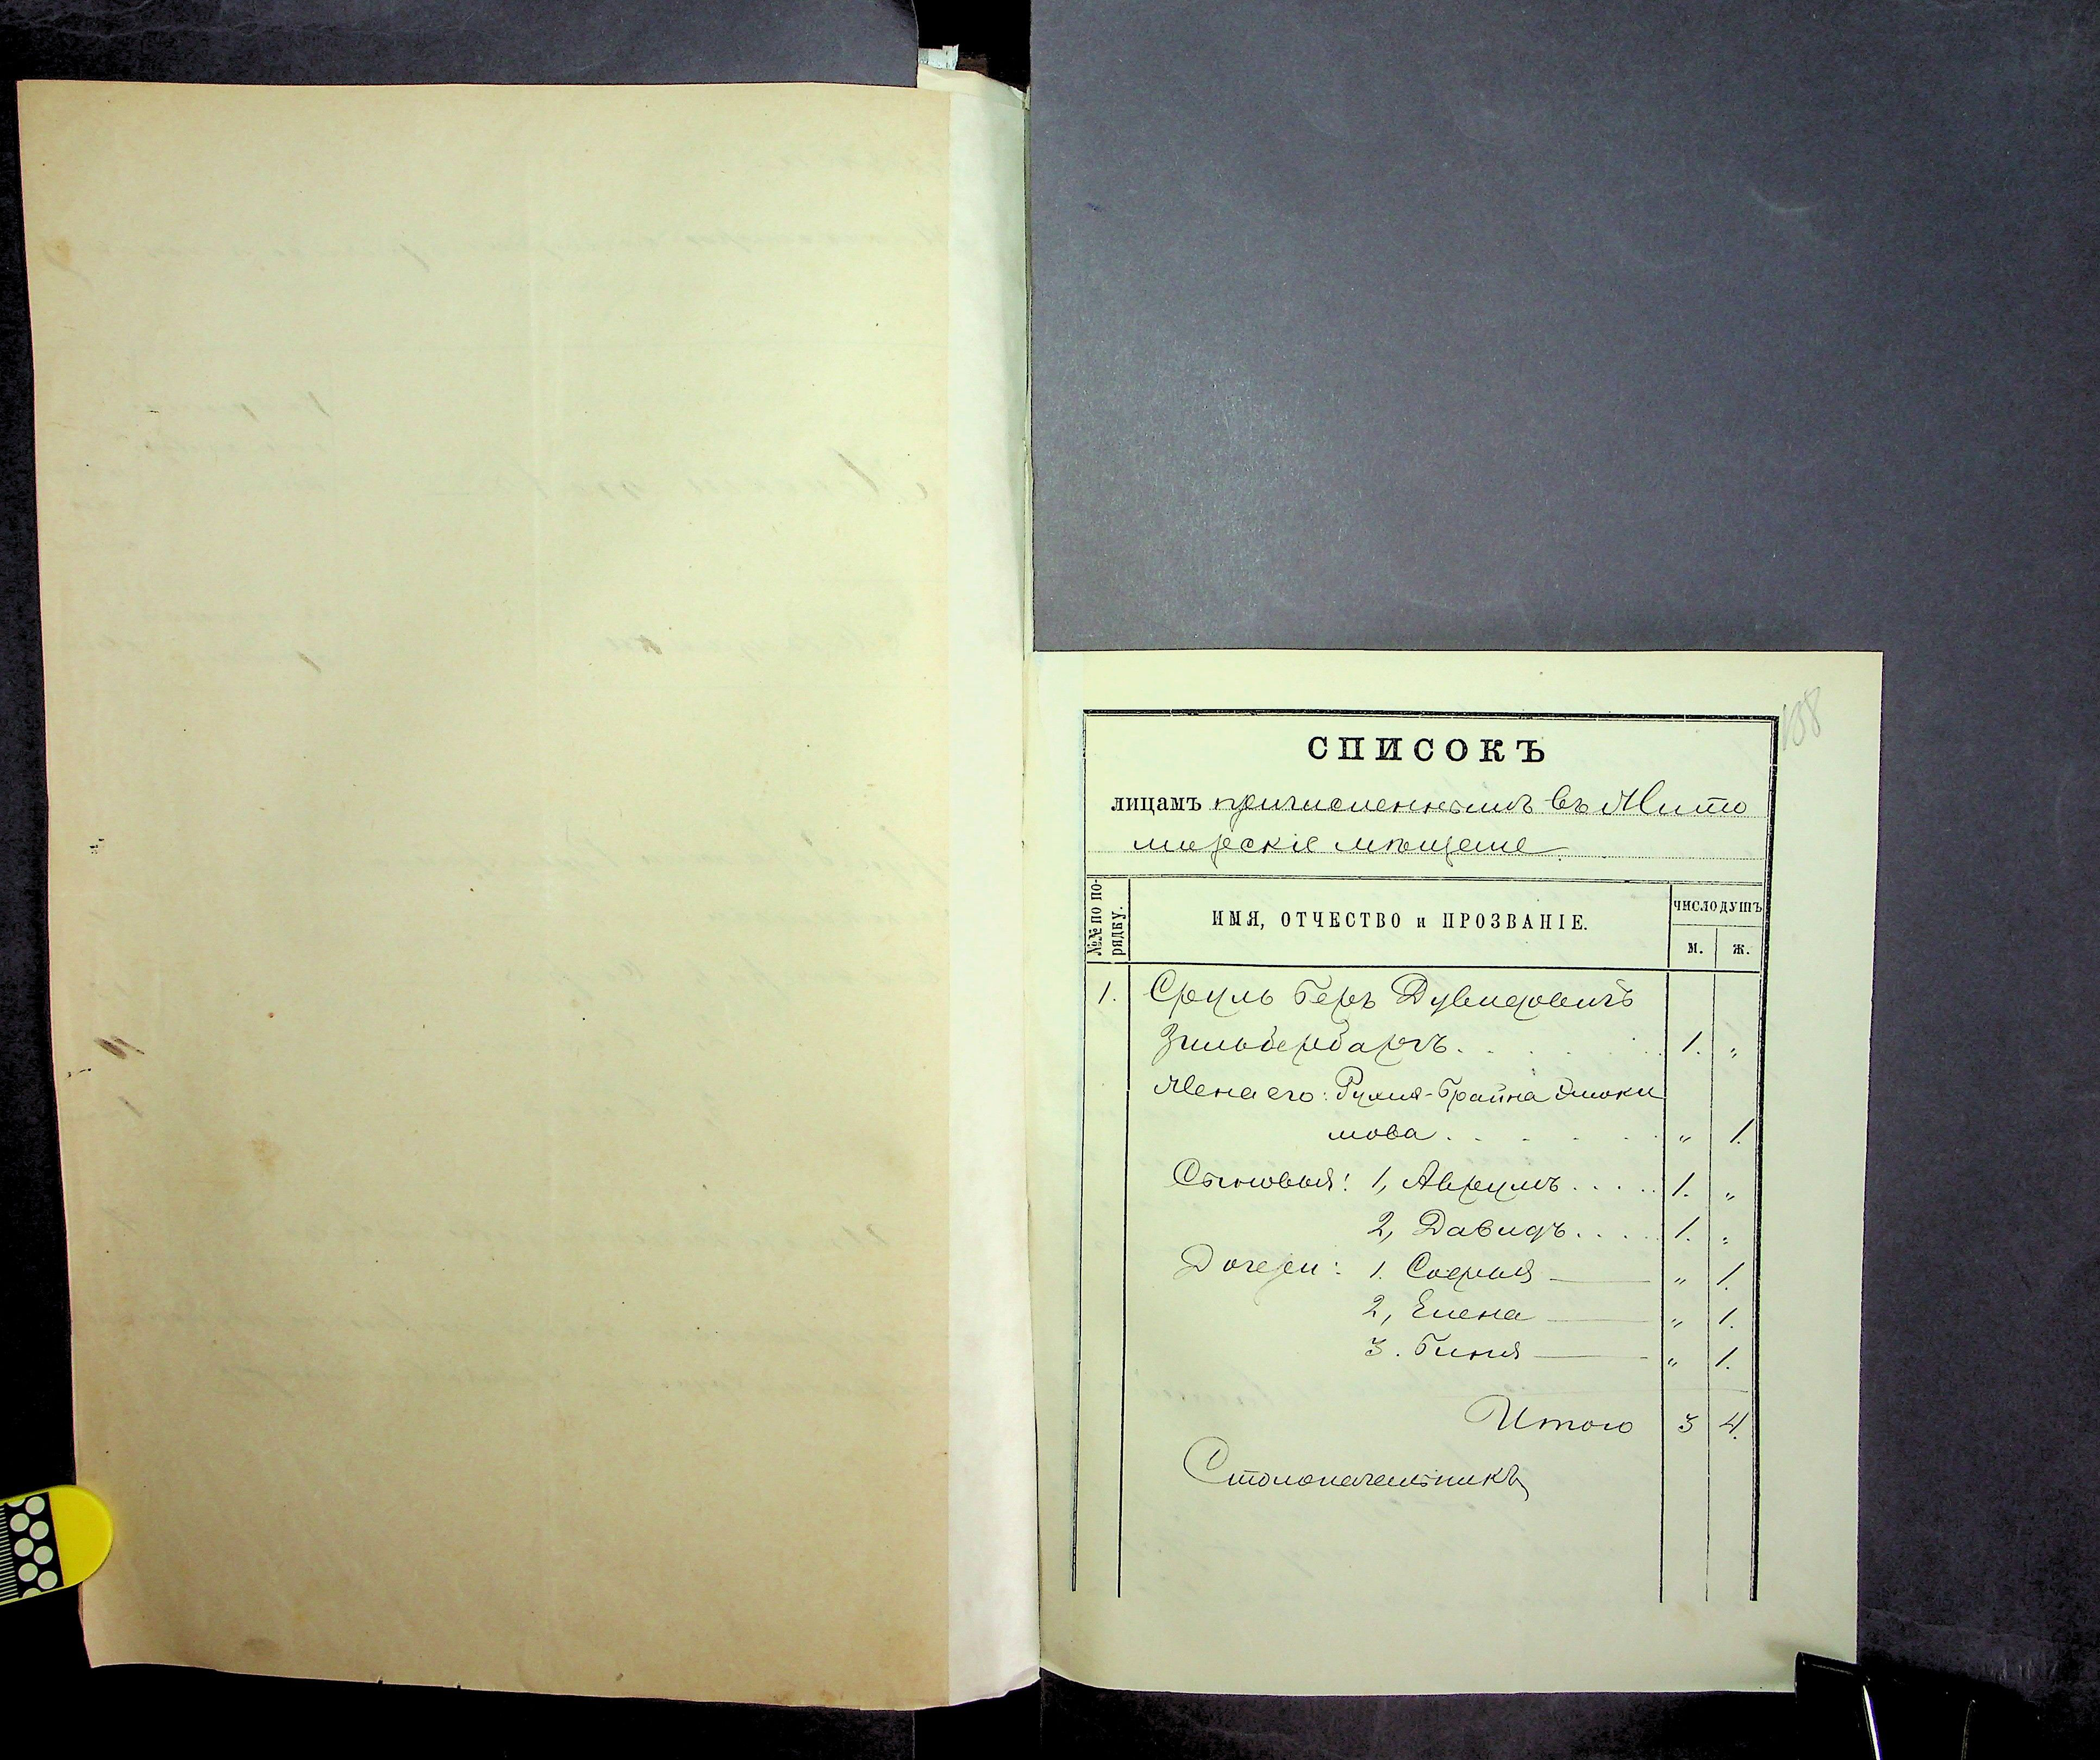 108
СПИСОКЪ
лицамъ причисленнымъ въ Жито
мирскіе мѣщане
№№ по по-
рядку.
ИМЯ, ОТЧЕСТВО и ПРОЗВАНІЕ.
ЧИСЛО ДУШЪ
М. Ж.
1. Сруль Беръ Дувидовичъ
Зильбербаргъ. . . . . . 1. "
Жена его: Рухля-Брайна
мова. . . . . . " 1.
Сыновья: 1, Аврумъ . . . . . 1. "
2, Давидъ . . . . 1. "
Дочери: 1. Софья — " 1.
2, Елена — " 1.
3. Биня — " 1.
Итого 3 4.
Столоначальникъ